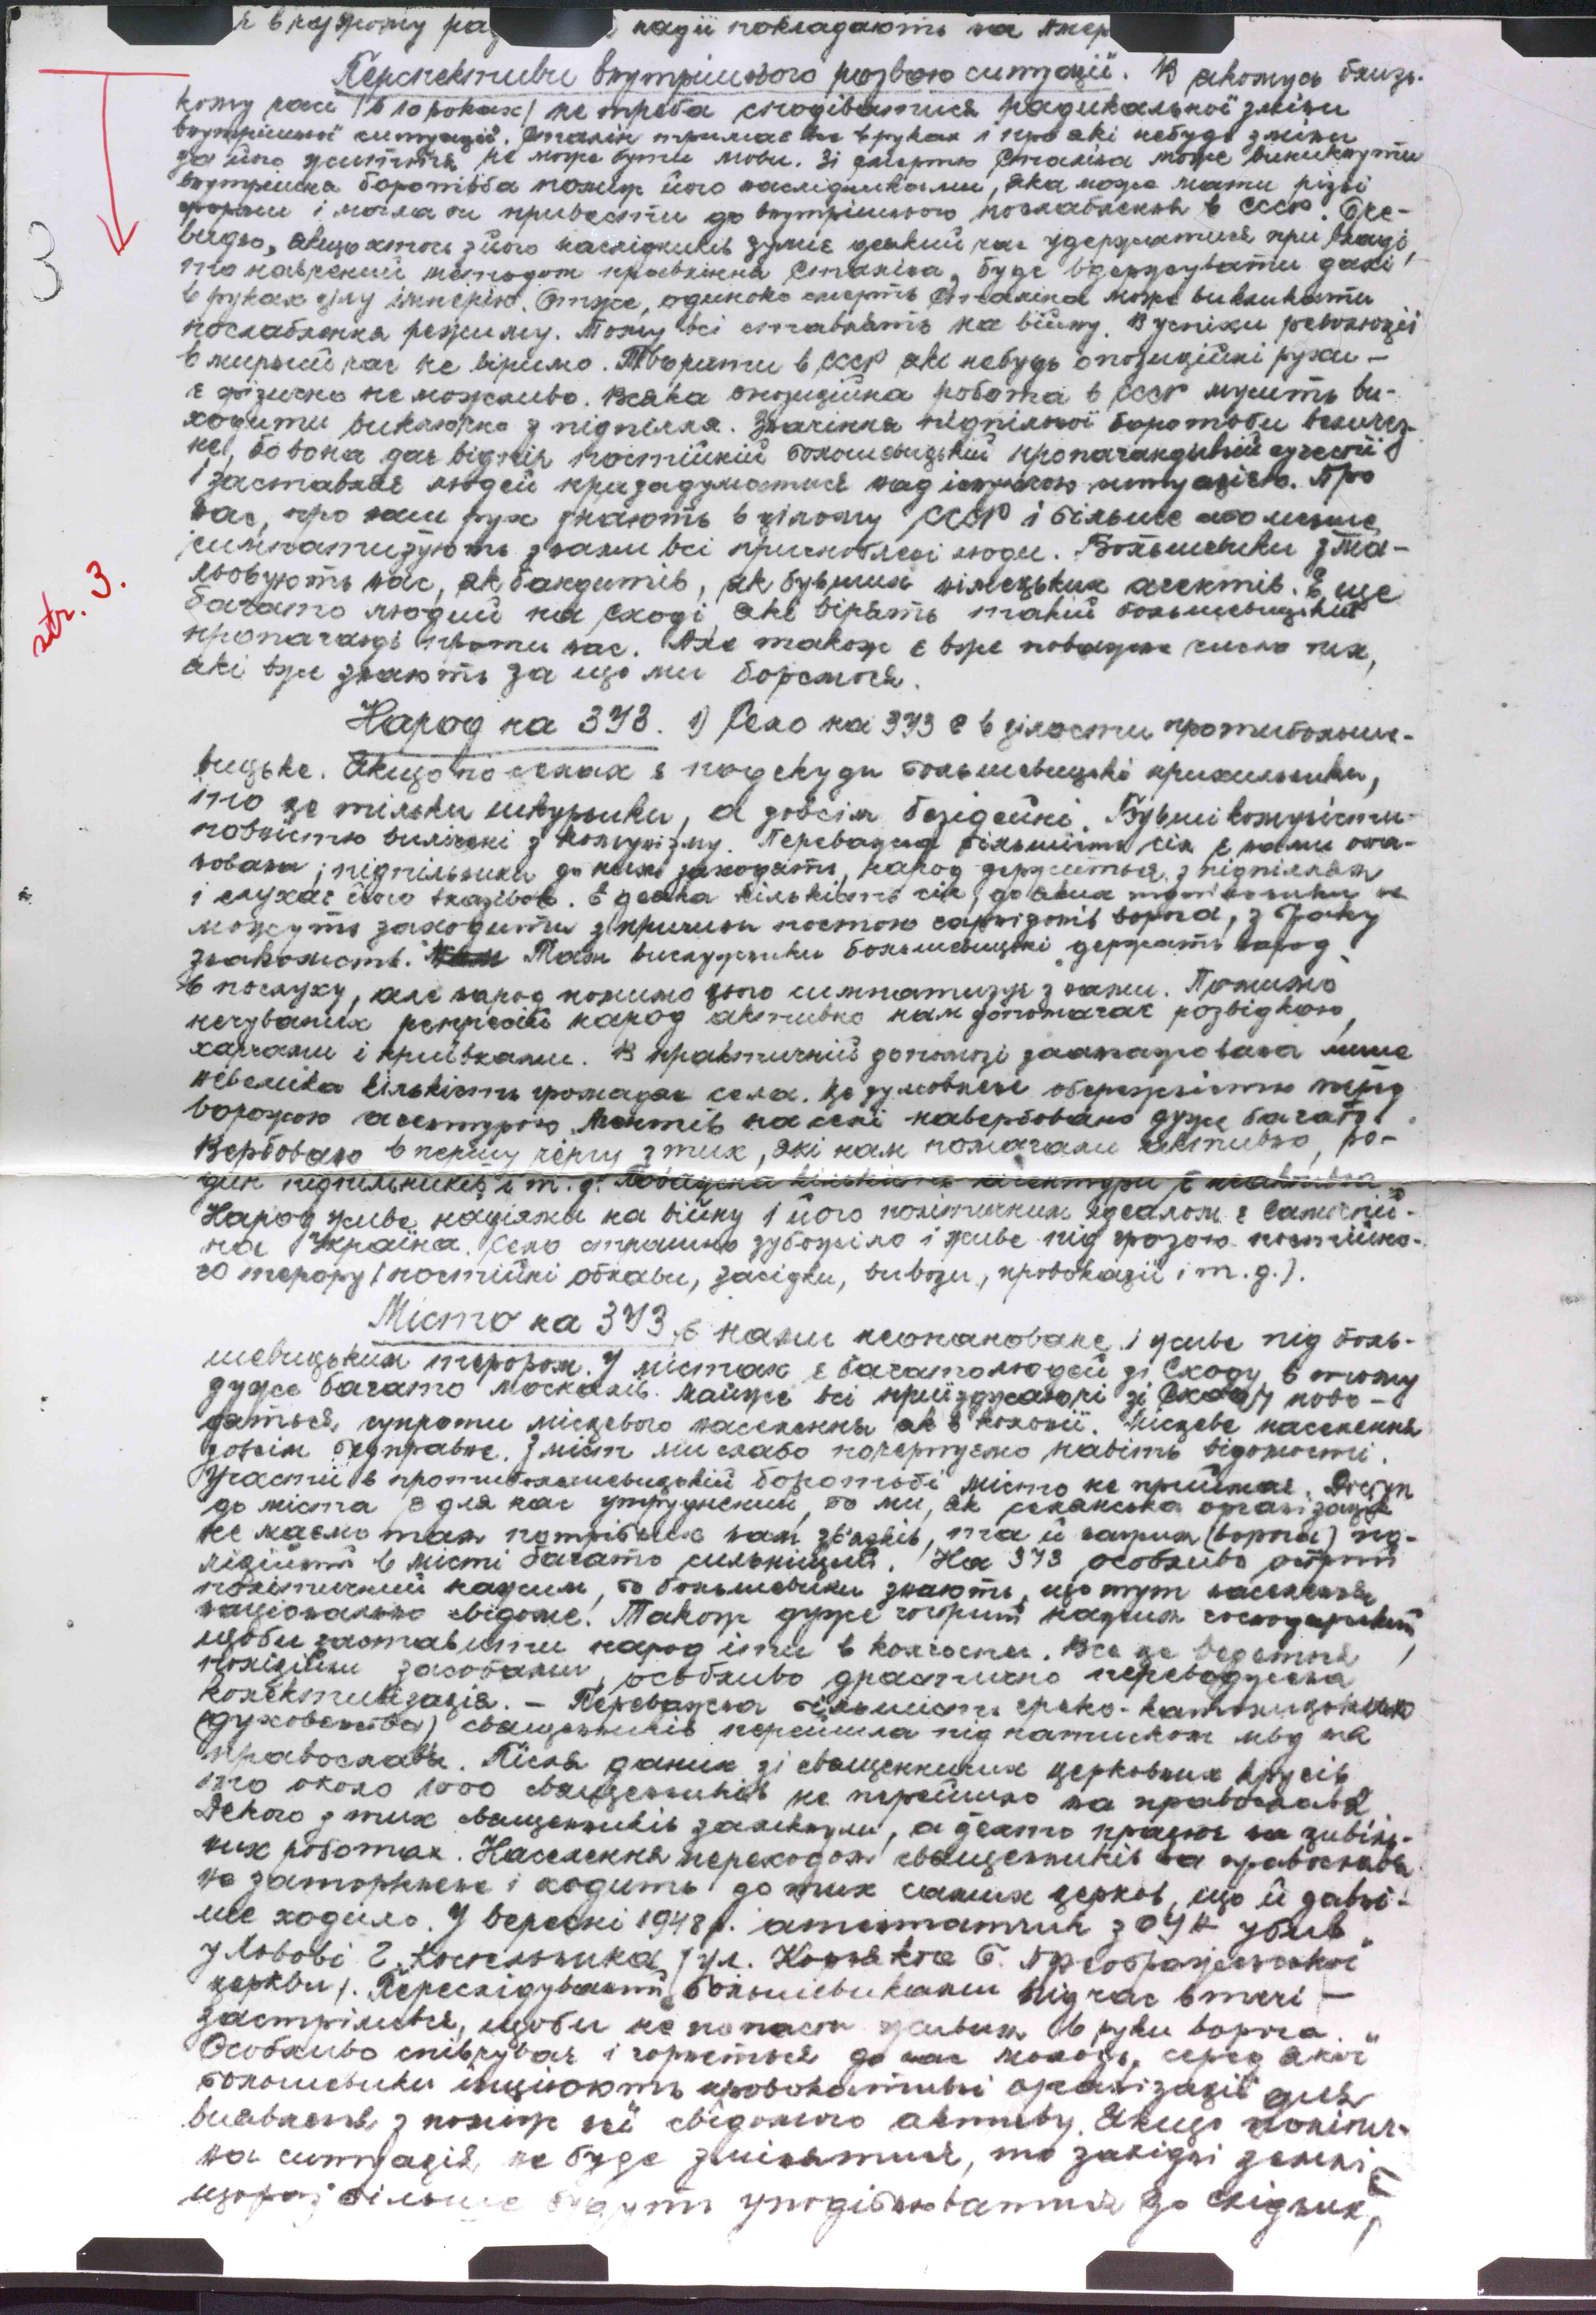 надії покладають на Амер
Перспективи внутрішнього розвою ситуації. В якомусь близь-
кому часі /5 10 роках/ не треба сподіватися радикальної зміни
внутрішньої ситуації. Сталін тримає все в руках і про які небудь зміни
за його життя не може бути мови. Зі смертю Сталіна може виникнути
внутрішня боротьба поміж його наслідниками, яка може мати різні
форми і могла би привести до внутрішнього послаблення в СССР. Оче-
видно, якщо хтось з його наслідників зуміє деякий час удержатися при владі,
то навчений методом правління Сталіна, буде вдержувати далі
в руках цілу імперію. Отже, одиноко смерть Сталіна може викликати
послаблення режиму. Тому всі ставлять на війну. В успіхи революції
в мирний час не віримо. Творити в СССР які небудь опозиційні рухи –
є фізично неможливо. Всяка опозиційна робота в СССР мусить ви-
ходити виключно з підпілля. Значіння підпільної боротьби величез-
не, бо вона дає відпір постійній большевицькій пропагандивній сугестії
і заставляє людей призадуматися над існуючою ситуацією. Про
нас, про наш рух знають в цілому СССР і більше або менше
симпатизують з нами всі пригноблені люди. Большевики з'ма-
льовують нас, як бандитів, як бувших німецьких агентів. Є ще
багато людий на Сході, які вірять такій большевицькій
пропаганді проти нас. Але також є вже поважне число тих,
які вже знають за що ми боремося.
str. 3.
3
Народ на ЗУЗ. 1) Село на ЗУЗ є в цілости протибольше-
вицьке. Якщо по селах є подекуди большевицькі прихильники,
то це тільки шкурники, а зовсім безідейні. Бувші комуністи
повністю вилічені з комунізму. Переважна більшість сіл є нами опа-
нована; підпільники до них заходять, народ держиться з підпіллям
і слухає його вказівок. Є деяка кількість сіл, до яких підпільники не
можуть заходити з причини постою гарнізонів ворога, з браку
знакомств. Там вислужники большевицькі держать народ
в послуху, але народ помимо цього симпатизує з нами. Помимо
нечуваних репресій народ активно нам допомагає розвідкою,
харчами і криївками. В практичній допомозі заангажована лише
невелика кількість громадян села. Це зумовлене обережністю перед
ворожою агентурою. Агентів на селі навербовано дуже багато.
Вербовано в першу чергу з тих, які нам помагали активно, ро-
дин підпільників і т. д. Поважна кількість агентури є
Народ живе надіями на війну і його політичним ідеалом є Самостій-
на Україна. Село страшно зубожіло і живе під грозою постійно-
го терору /постійні облави, засідки, вивози, провокації і т. д./.
Місто на ЗУЗ є нами неопановане і живе під боль-
шевицьким терором. У містах є багато людей зі Сходу, в тому
дуже багато москалів. Майже всі приїзджаючі зі Сходу пово-
дяться супроти місцевого населення як в колонії. Місцеве населення
зовсім безправне. З міст ми слабо почерпуємо навіть відомості.
Участи в протибольшевицькій боротьбі місто не приймає. Доступ
до міста є для нас утруднений, бо ми, як селянська організація
не маємо там потрібних нам зв'язків, та й натиск (ворога) по-
ліційний в місті багато сильніщий. На ЗУЗ особливо острий
політичний нажим, бо большевики знають, що тут населення
національно свідоме. Також дуже гострий нажим господарський,
щоби заставити народ іти в колгоспи. Все це ведеться
поліційни засобами, особливо драстично переводжена
колективізація. – Переважна більшість греко-католицького
(духовенства) священників перейшла під натиском МВД на
православ'я. Після даних зі священничих церковних кругів
то около 1000 священників не перейшло на православ'я.
Декого з тих священників замкнули, а дехто працює на цивіль-
них роботах. Населення переходом священників на православ'я
не заторкнене і ходить до тих самих церков, що й давні-
ше ходило. У вересні 1948р. атентатчик з ОУН убив
у Львові Г. Костельника /ул. б. Преображенської
церкви/. Переслідуваний большевиками підчас втечі –
застрілився, щоби не попасти живим в руки ворога.
Особливо співчуває і горнеться до нас молодь, серед якої
большевики ініціюють провокативні організації для
виявлення з поміж неї свідомого активу. Якщо політич-
на ситуація не буде змінятися, то західні землі
щораз більше будуть уподібнюватися до східних,